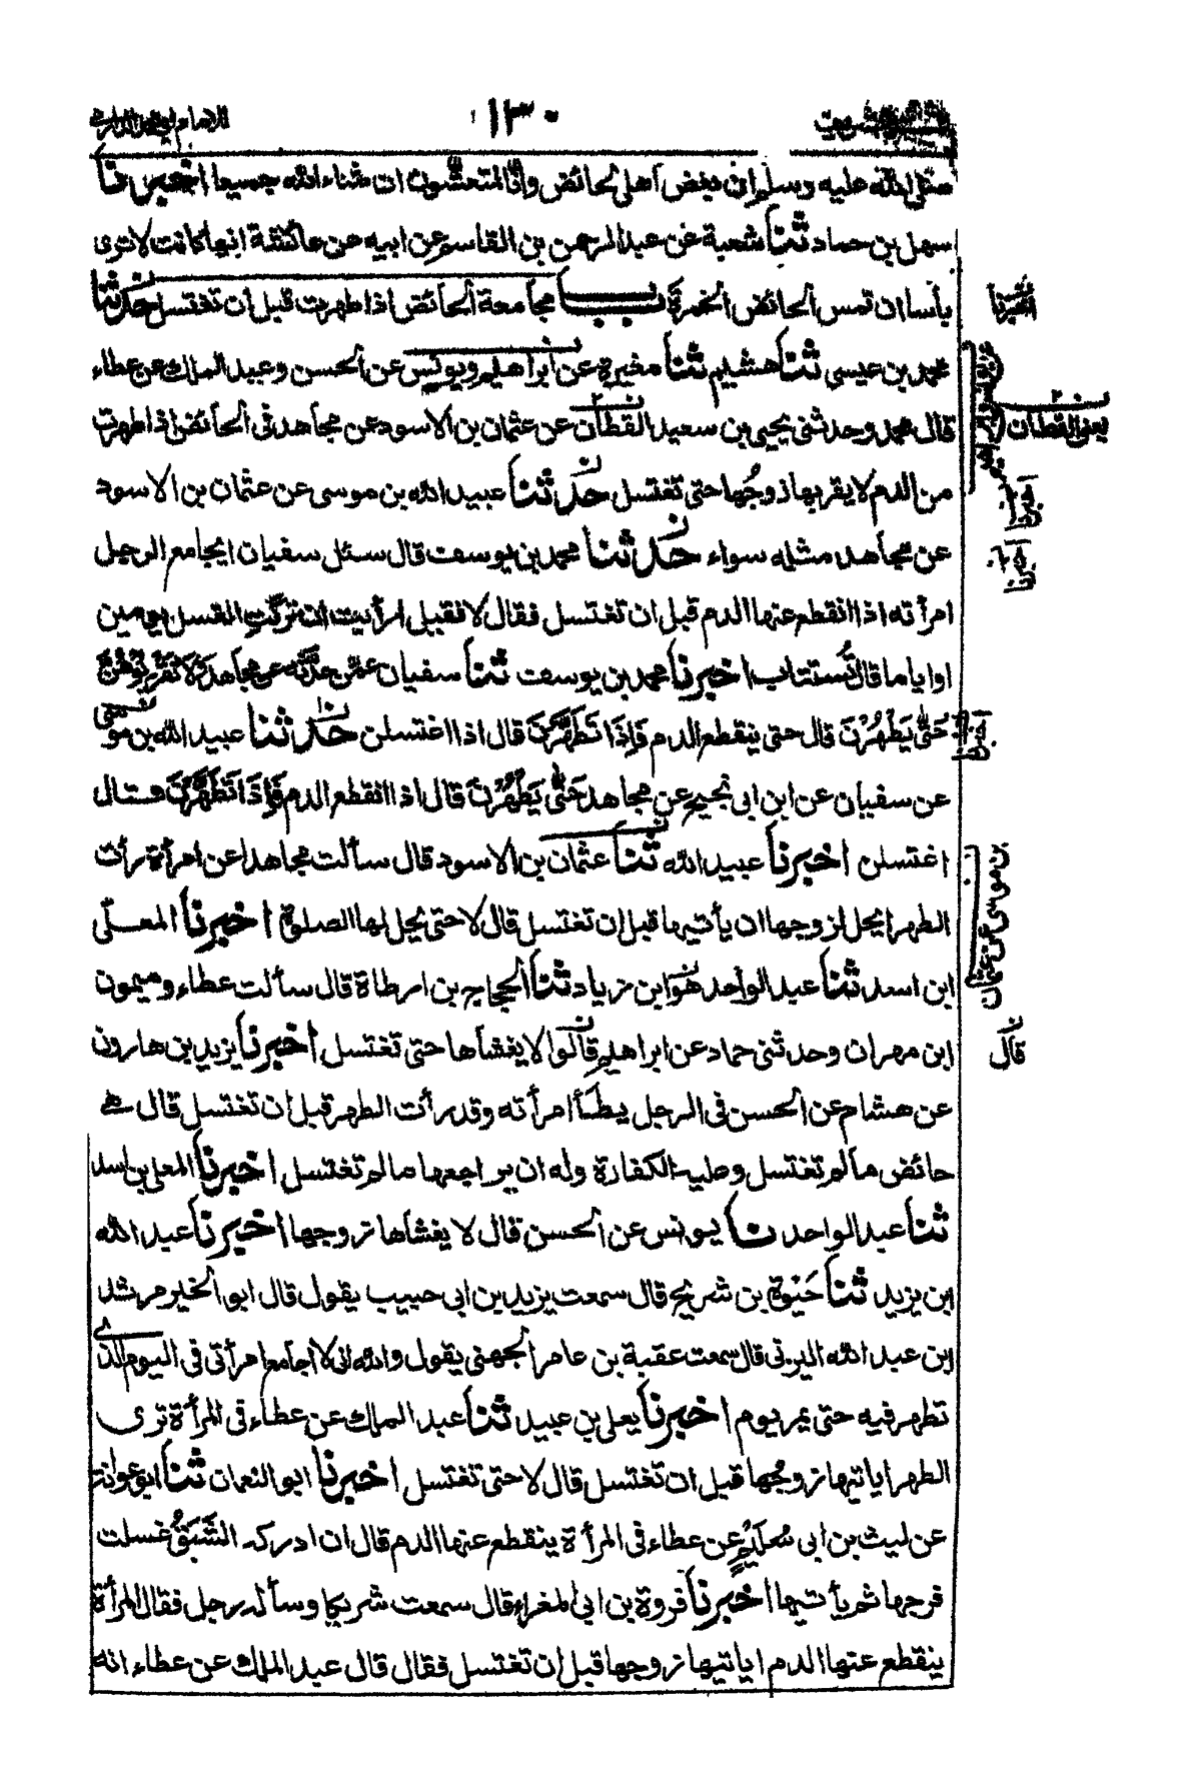 ١٣٠
صلى الله عليه وسلم ان بعض اهلى لحائض وانا لمتعشون ان شاء الله جميعا اخبرنا
سهل بن حماد ثنا شعبة عن عبد الرحمن بن القاسم عن ابيه عن عائشة انها كانت لا ترى
بأسا ان تمس الحائض الخمرة باب مجامعة الحائض اذا طهرت قبل ان تغتسل حدثنا
محمد بن عيسى ثنا هشيم ثنا مغيرة عن ابراهيم ويونس عن الحسن وعبد الملك عن عطاء
قال محمد وحدثنى يحيى بن سعيد القطان عن عثمان بن الاسود عن مجاهد فى الحائض اذا طهرت
من الدم لا يقربها زوجها حتى تغتسل حدثنا عبيد الله بن موسى عن عثمان بن الاسود
عن مجاهد مثله سواء حدثنا محمد بن يوسف قال سئل سفيان ايجامع الرجل
امرأته اذا انقطع عنها الدم قبل ان تغتسل فقال لا فقيل ارأيت ان تركت الغسل يومين
او اياما قال تُستتاب اخبرنا محمد بن يوسف ثنا سفيان عمن حدثه عن مجاهد وَلَا تَقْرَبُوْهُنَّ
حَتّٰى يَطْهُرْنَ قال حتى ينقطع الدم فَاِذَا تَطَهَّرْنَ قال اذا اغتسلن حدثنا عبيد الله بن موسى
عن سفيان عن ابن ابى نجيح عن مجاهد حَتّٰى يَطْهُرْنَ قال اذا انقطع الدم فَاِذَا تَطَهَّرْنَ قال
اغتسلن اخبرنا عبيد الله ثنا عثمان بن الاسود قال سألت مجاهدا عن امرأة رأت
الطهر ايحل لزوجها ان يأتيها قبل ان تغتسل قال لا حتى يحل لها الصلوة اخبرنا المعلّى
ابن اسد ثنا عبد الواحد هو ابن زياد ثنا الحجاج بن ارطاة قال سألت عطاء وميمون
ابن مهران وحدثنى حماد عن ابراهيم قالوا لا يغشاها حتى تغتسل اخبرنا يزيد بن هارون
عن هشام عن الحسن فى الرجل يطأ امرأته وقد رأت الطهر قبل ان تغتسل قال هى
حائض ما لم تغتسل وعليه الكفارة وله ان يراجعها ما لم تغتسل اخبرنا المعلى بن اسد
ثنا عبد الواحد نا يونس عن الحسن قال لا يغشاها زوجها اخبرنا عبد الله
بن يزيد ثنا حَيْوة بن شريح قال سمعت يزيد بن ابى حبيب يقول قال ابو الخير مرثد
ابن عبد الله اليزنى قال سمعت عقبة بن عامر الجهنى يقول والله انى لا اجامع امرأتى فى اليوم الذى
تطهر فيه حتى يمر يوم اخبرنا يعلى بن عبيد ثنا عبد الملك عن عطاء فى المرأة ترى
الطهر اياتيها زوجها قبل ان تغتسل قال لا حتى تغتسل اخبرنا ابو النعمان ثنا ابو عوانة
عن ليث بن ابى سُليم عن عطاء فى المرأة ينقطع عنها الدم قال ان ادركه الشَّبَقُ غسلت
فرجها ثم يأتيها اخبرنا فروة بن ابى المغراء قال سمعت شريكا وسأله رجل فقال المرأة
ينقطع عنها الدم اياتيها زوجها قبل ان تغتسل فقال قال عبد الملك عن عطاء انه
اخبرنا
يعنى القطان
اخبرنا
بن موسى عن عثمان
قال